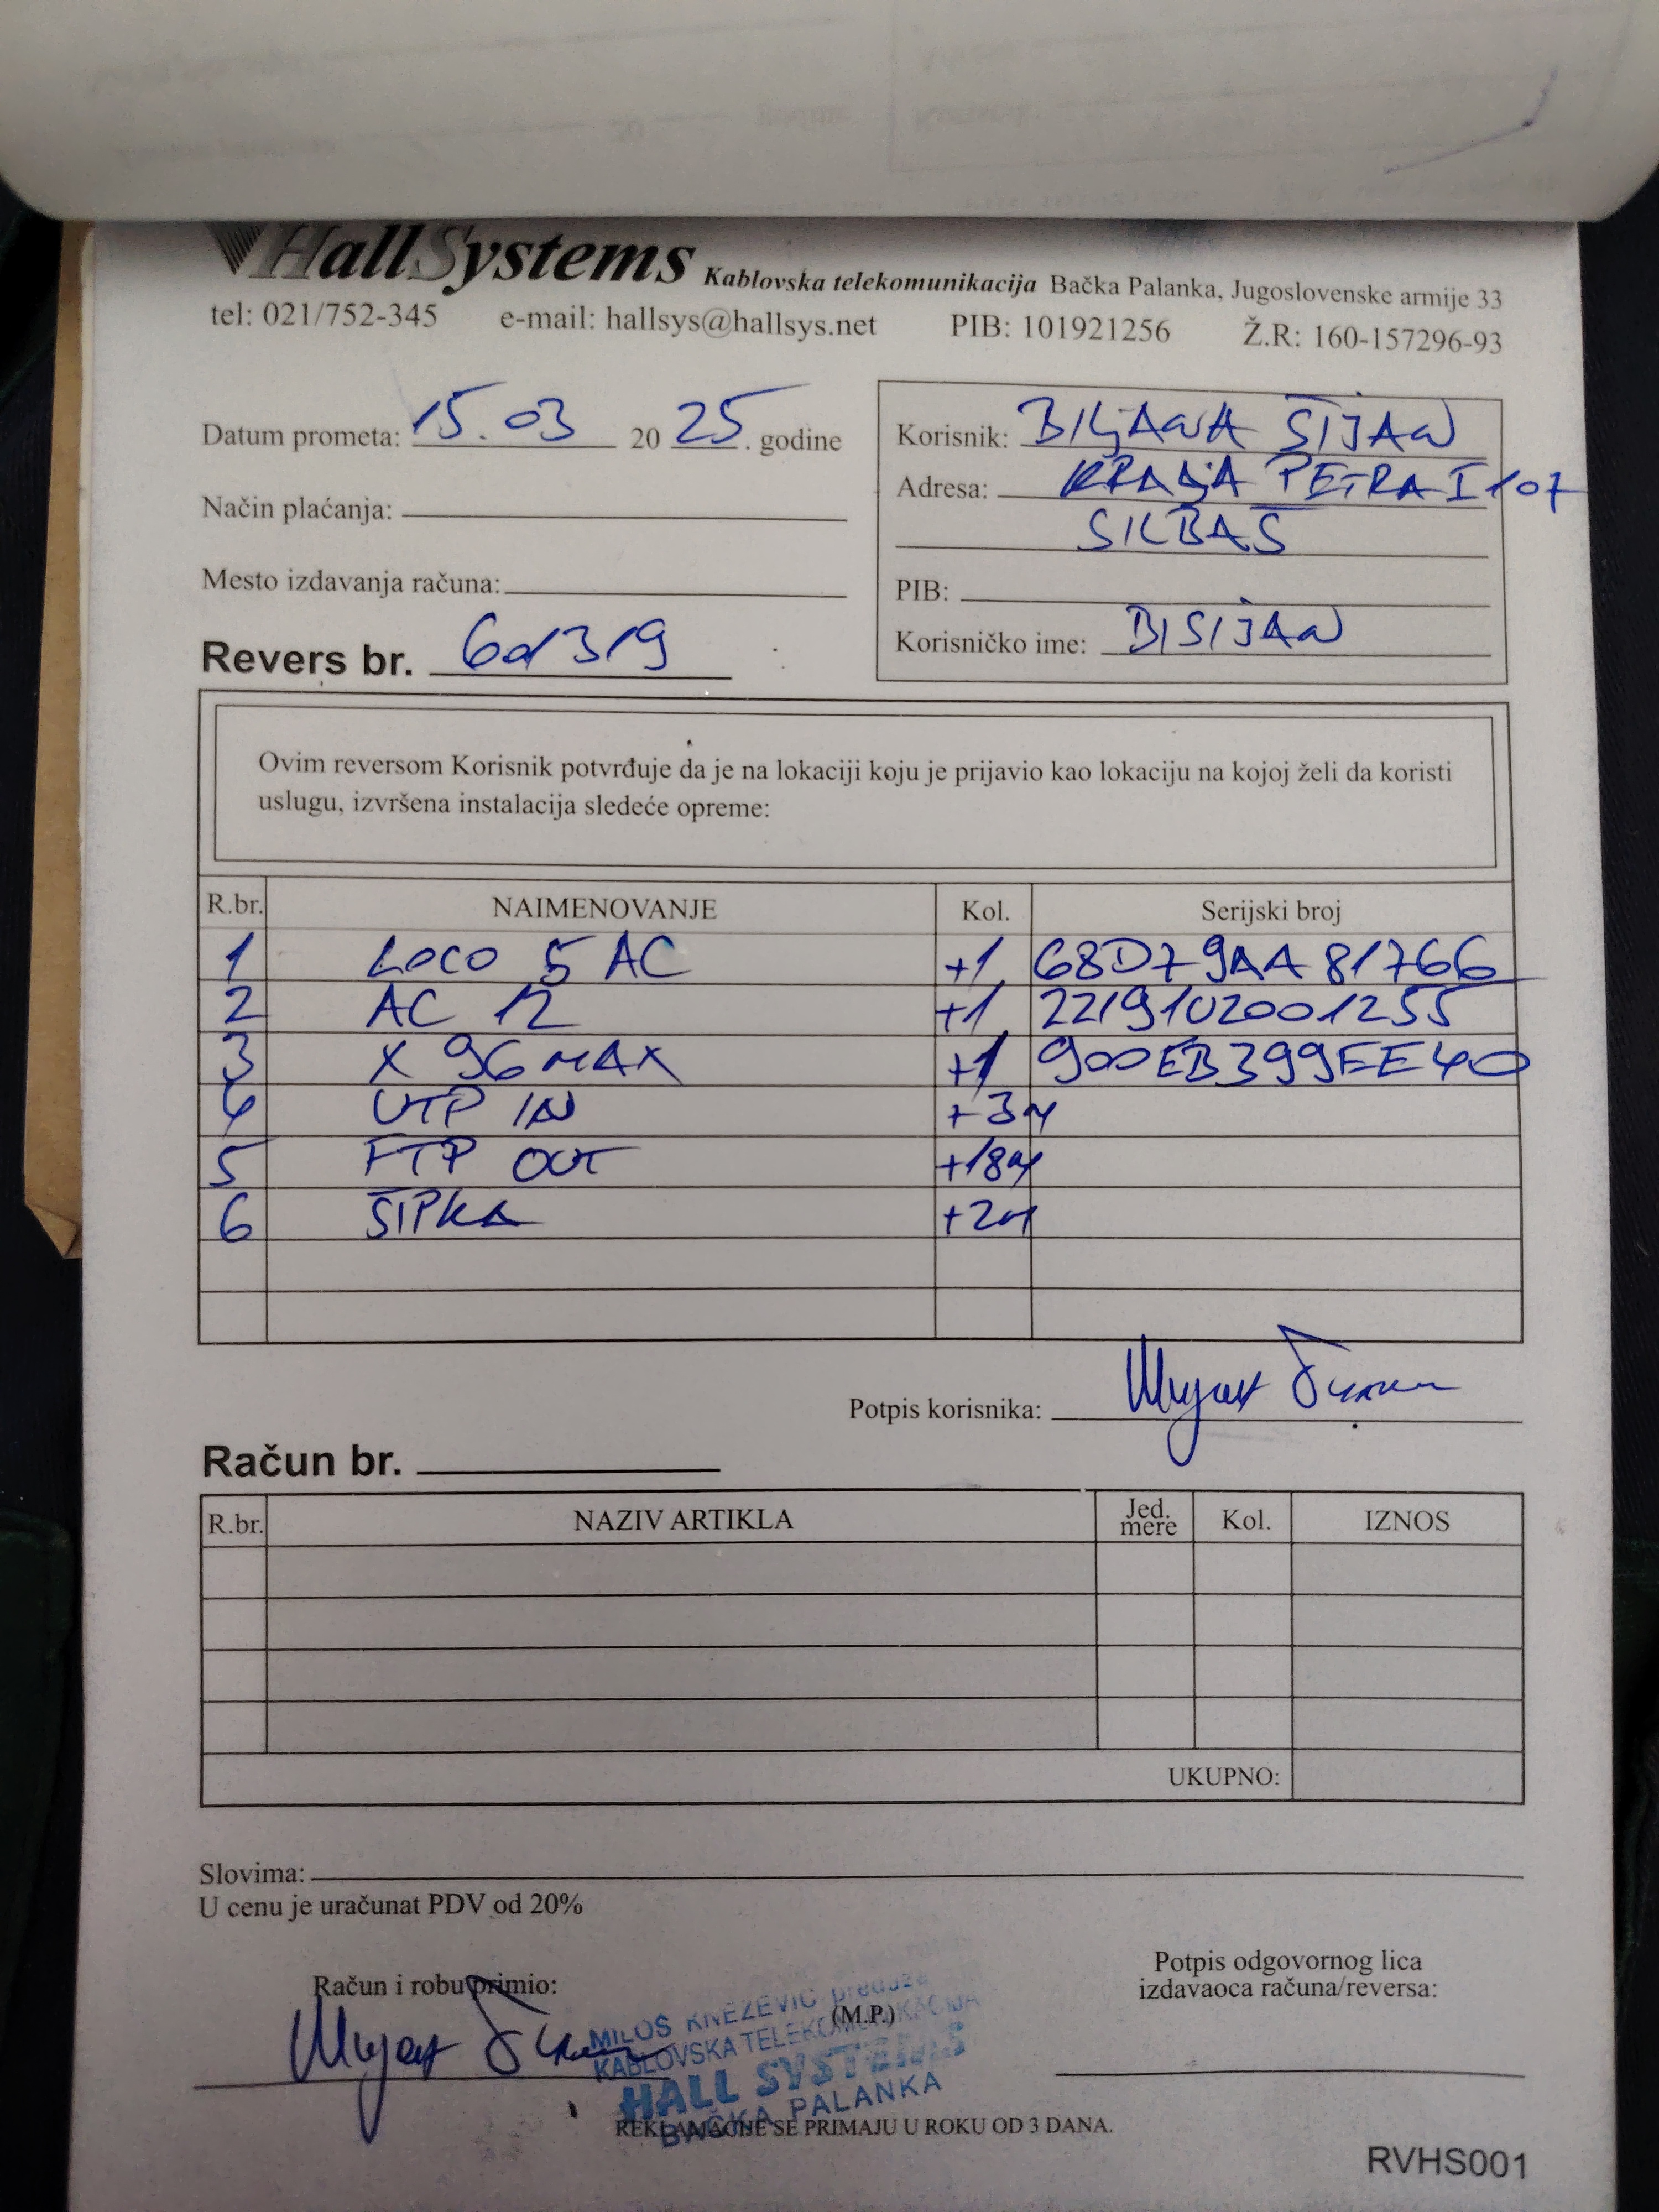 HallSystems Kablovska telekomunikacija Bačka Palanka, Jugoslovenske armije 33
tel: 021/752-345 e-mail: hallsys@hallsys.net PIB: 101921256 Ž.R: 160-157296-93
Datum prometa: 15.03 2025. godine
Način plaćanja:
Mesto izdavanja računa:
Revers br. 601319
Korisnik: BILJANA ŠIJAN
Adresa: KRALJA PETRA I 107
SILBAŠ
PIB:
Korisničko ime: BISIJAN
Ovim reversom Korisnik potvrđuje da je na lokaciji koju je prijavio kao lokaciju na kojoj želi da koristi
uslugu, izvršena instalacija sledeće opreme:
R.br. NAIMENOVANJE Kol. Serijski broj
1 LOCO 5 AC +1 68D79AA81766
2 AC 12 +1 2219102001255
3 X 96 MAX +1 900EB399EE40
4 UTP IN +3m
5 FTP OUT +18m
6 ŠIPKA +2m
Potpis korisnika:
Račun br.
R.br. NAZIV ARTIKLA Jed. mere Kol. IZNOS
UKUPNO:
Slovima:
U cenu je uračunat PDV od 20%
Račun i robu primio:
(M.P.)
Potpis odgovornog lica
izdavaoca računa/reversa:
MILOŠ KNEŽEVIĆ preduze
KABLOVSKA TELEKOMUNIKACIJA
HALL SYSTEMS
BAČKA PALANKA
REKLAMACIJE SE PRIMAJU U ROKU OD 3 DANA.
RVHS001